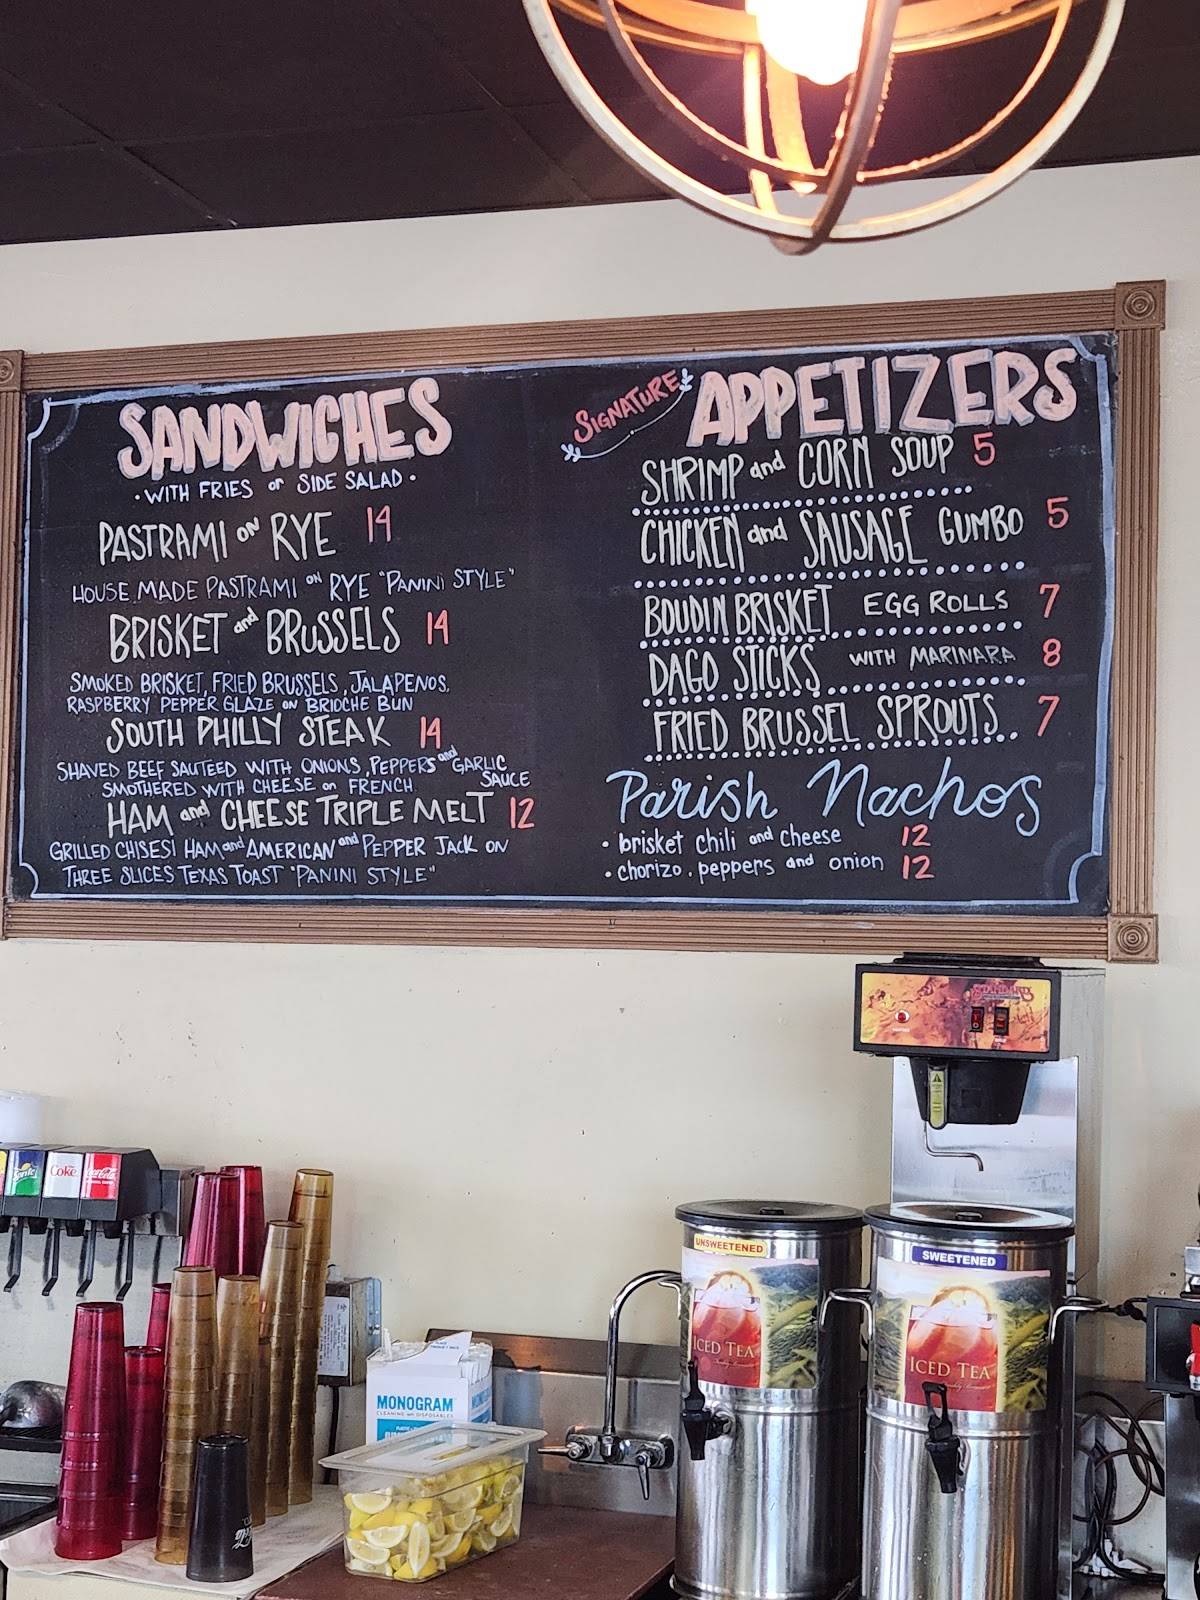 SANDWICHES
• WITH FRIES or SIDE SALAD •
PASTRAMI on RYE 14
HOUSE MADE PASTRAMI on RYE "PANINI STYLE"
BRISKET and BRUSSELS 14
SMOKED BRISKET, FRIED BRUSSELS, JALAPENOS,
RASPBERRY PEPPER GLAZE on BRIOCHE BUN
SOUTH PHILLY STEAK 14
SHAVED BEEF SAUTEED WITH ONIONS, PEPPERS and GARLIC SAUCE
SMOTHERED WITH CHEESE on FRENCH
HAM and CHEESE TRIPLE MELT 12
GRILLED CHISESI HAM and AMERICAN and PEPPER JACK ON
THREE SLICES TEXAS TOAST "PANINI STYLE"
SIGNATURE APPETIZERS
SHRIMP and CORN SOUP 5
CHICKEN and SAUSAGE GUMBO 5
BOUDIN BRISKET EGG ROLLS 7
DAGO STICKS WITH MARINARA 8
FRIED BRUSSEL SPROUTS 7
Parish Nachos
• brisket chili and cheese 12
• chorizo, peppers and onion 12
Sprite
Coke
UNSWEETENED
ICED TEA
SWEETENED
ICED TEA
MONOGRAM
CLEANING and DISPOSABLES